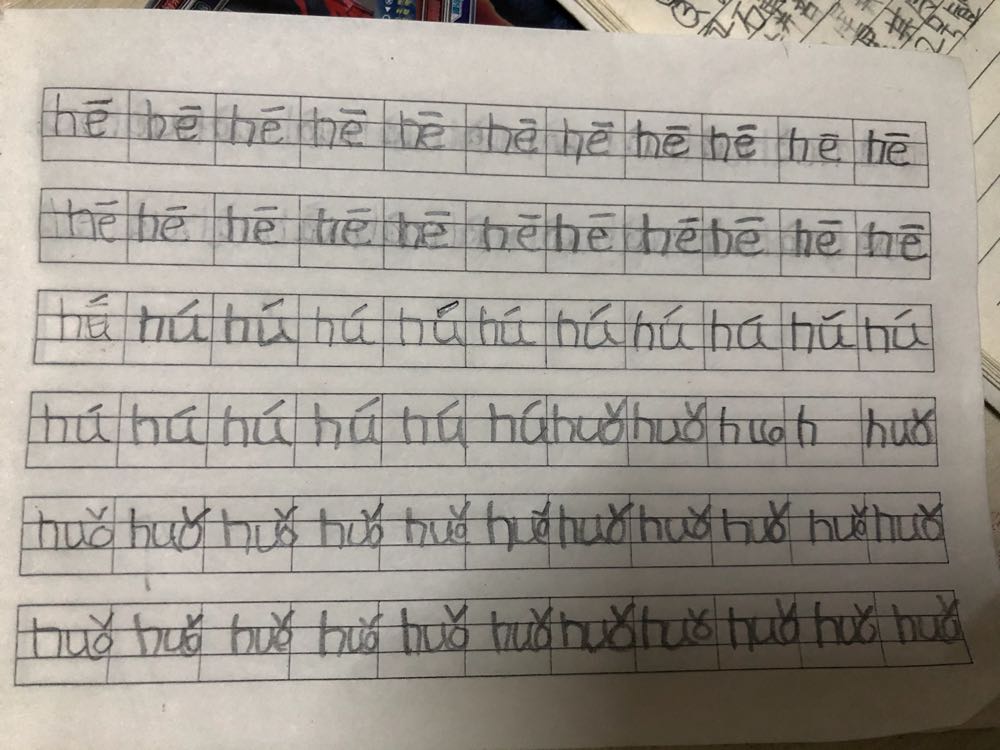 hē hē hē hē hē hē hē hē hē hē hē
hē hē hē hē hē hē hē hē hē hē hē
há há há há há há há há há há há
há há há há há há huǒ huǒ huo h huǒ
huǒ huǒ huǒ huǒ huǒ huǒ huǒ huǒ huǒ huǒ huǒ
huǒ huǒ huǒ huǒ huǒ huǒ huǒ huǒ huǒ huǒ huǒ